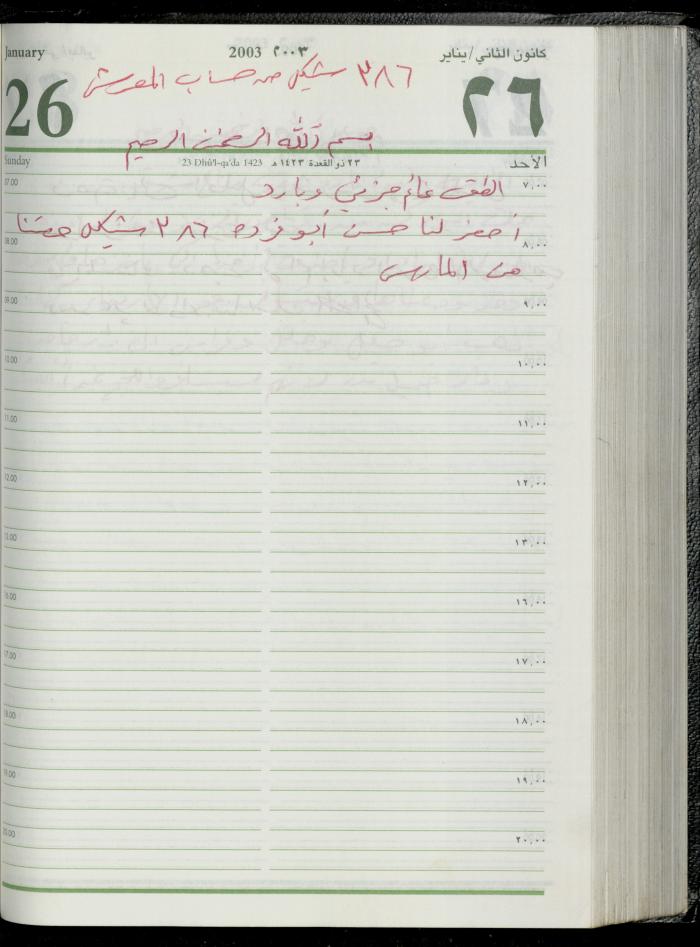 January 2003 ٢٠٠٣ كانون الثاني/يناير
26 ٢٦
٣٨٦ شيكل من حساب
بسم الله الرحمن الرحيم
Sunday 23 Dhū'l-qa'da 1423 ٢٣ ذو القعدة ١٤٢٣ هـ الأحد
07.00 ٧,٠٠
الطقس غائم جزئي وبارد
أحضر لنا حسن أبو فرده ٣٨٦ شيكل حصتنا
08.00 ٨,٠٠
من
09.00 ٩,٠٠
10.00 ١٠,٠٠
11.00 ١١,٠٠
12.00 ١٢,٠٠
13.00 ١٣,٠٠
16.00 ١٦,٠٠
17.00 ١٧,٠٠
18.00 ١٨,٠٠
19.00 ١٩,٠٠
20.00 ٢٠,٠٠